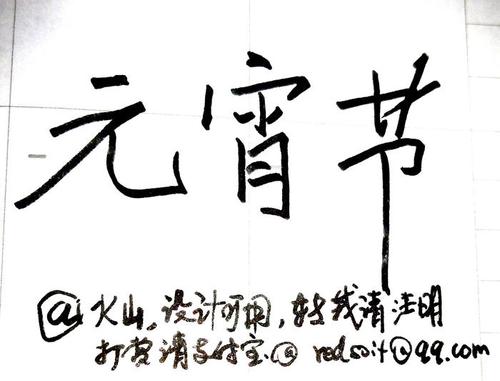 元宵节
@i火山,设计可用,转载请注明
打赏请支付宝@ redsoit@qq.com